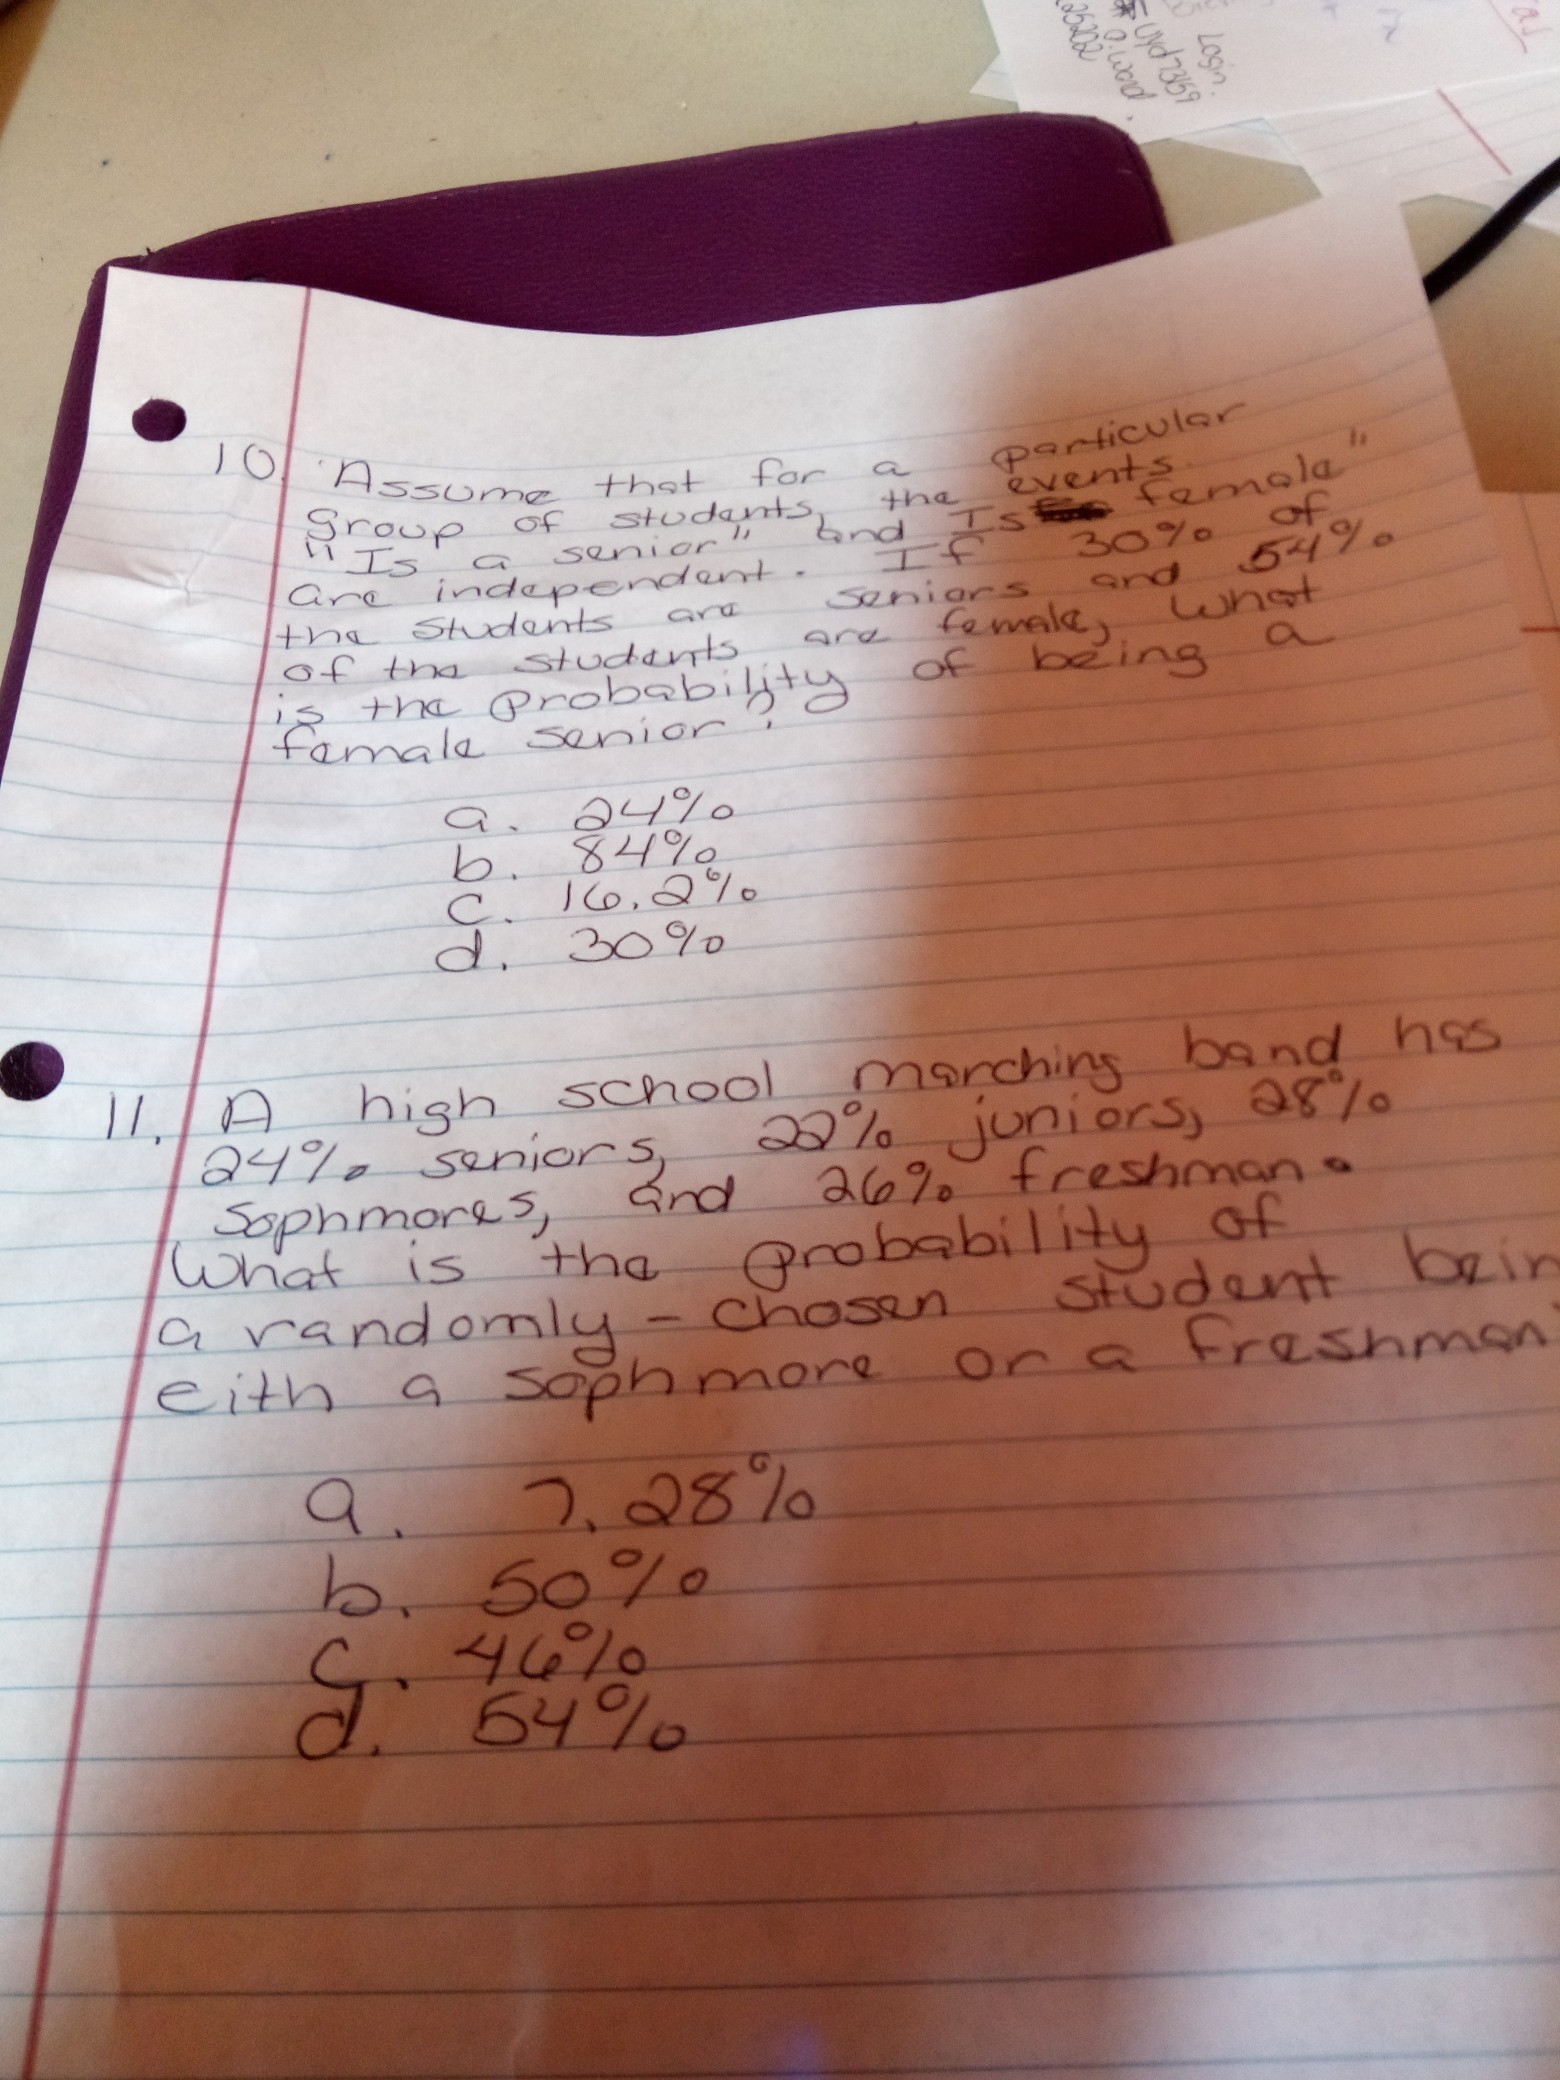 Login.
Uyd73159
a.word
25202
10. Assume that for a particular
group of students, the events
"Is a senior" and Is female"
are independent. If 30% of
the students are seniors and 54%
of the students are female, what
is the probability of being a
female senior?
a. 24%
b. 84%
c. 16.2%
d. 30%
11. A high school marching band has
24% seniors, 22% juniors, 28%
Sophmores, and 26% freshman.
What is the probability of
a randomly-chosen student bein
eith a sophmore or a freshman
a. 7.28%
b. 50%
c. 46%
d. 54%